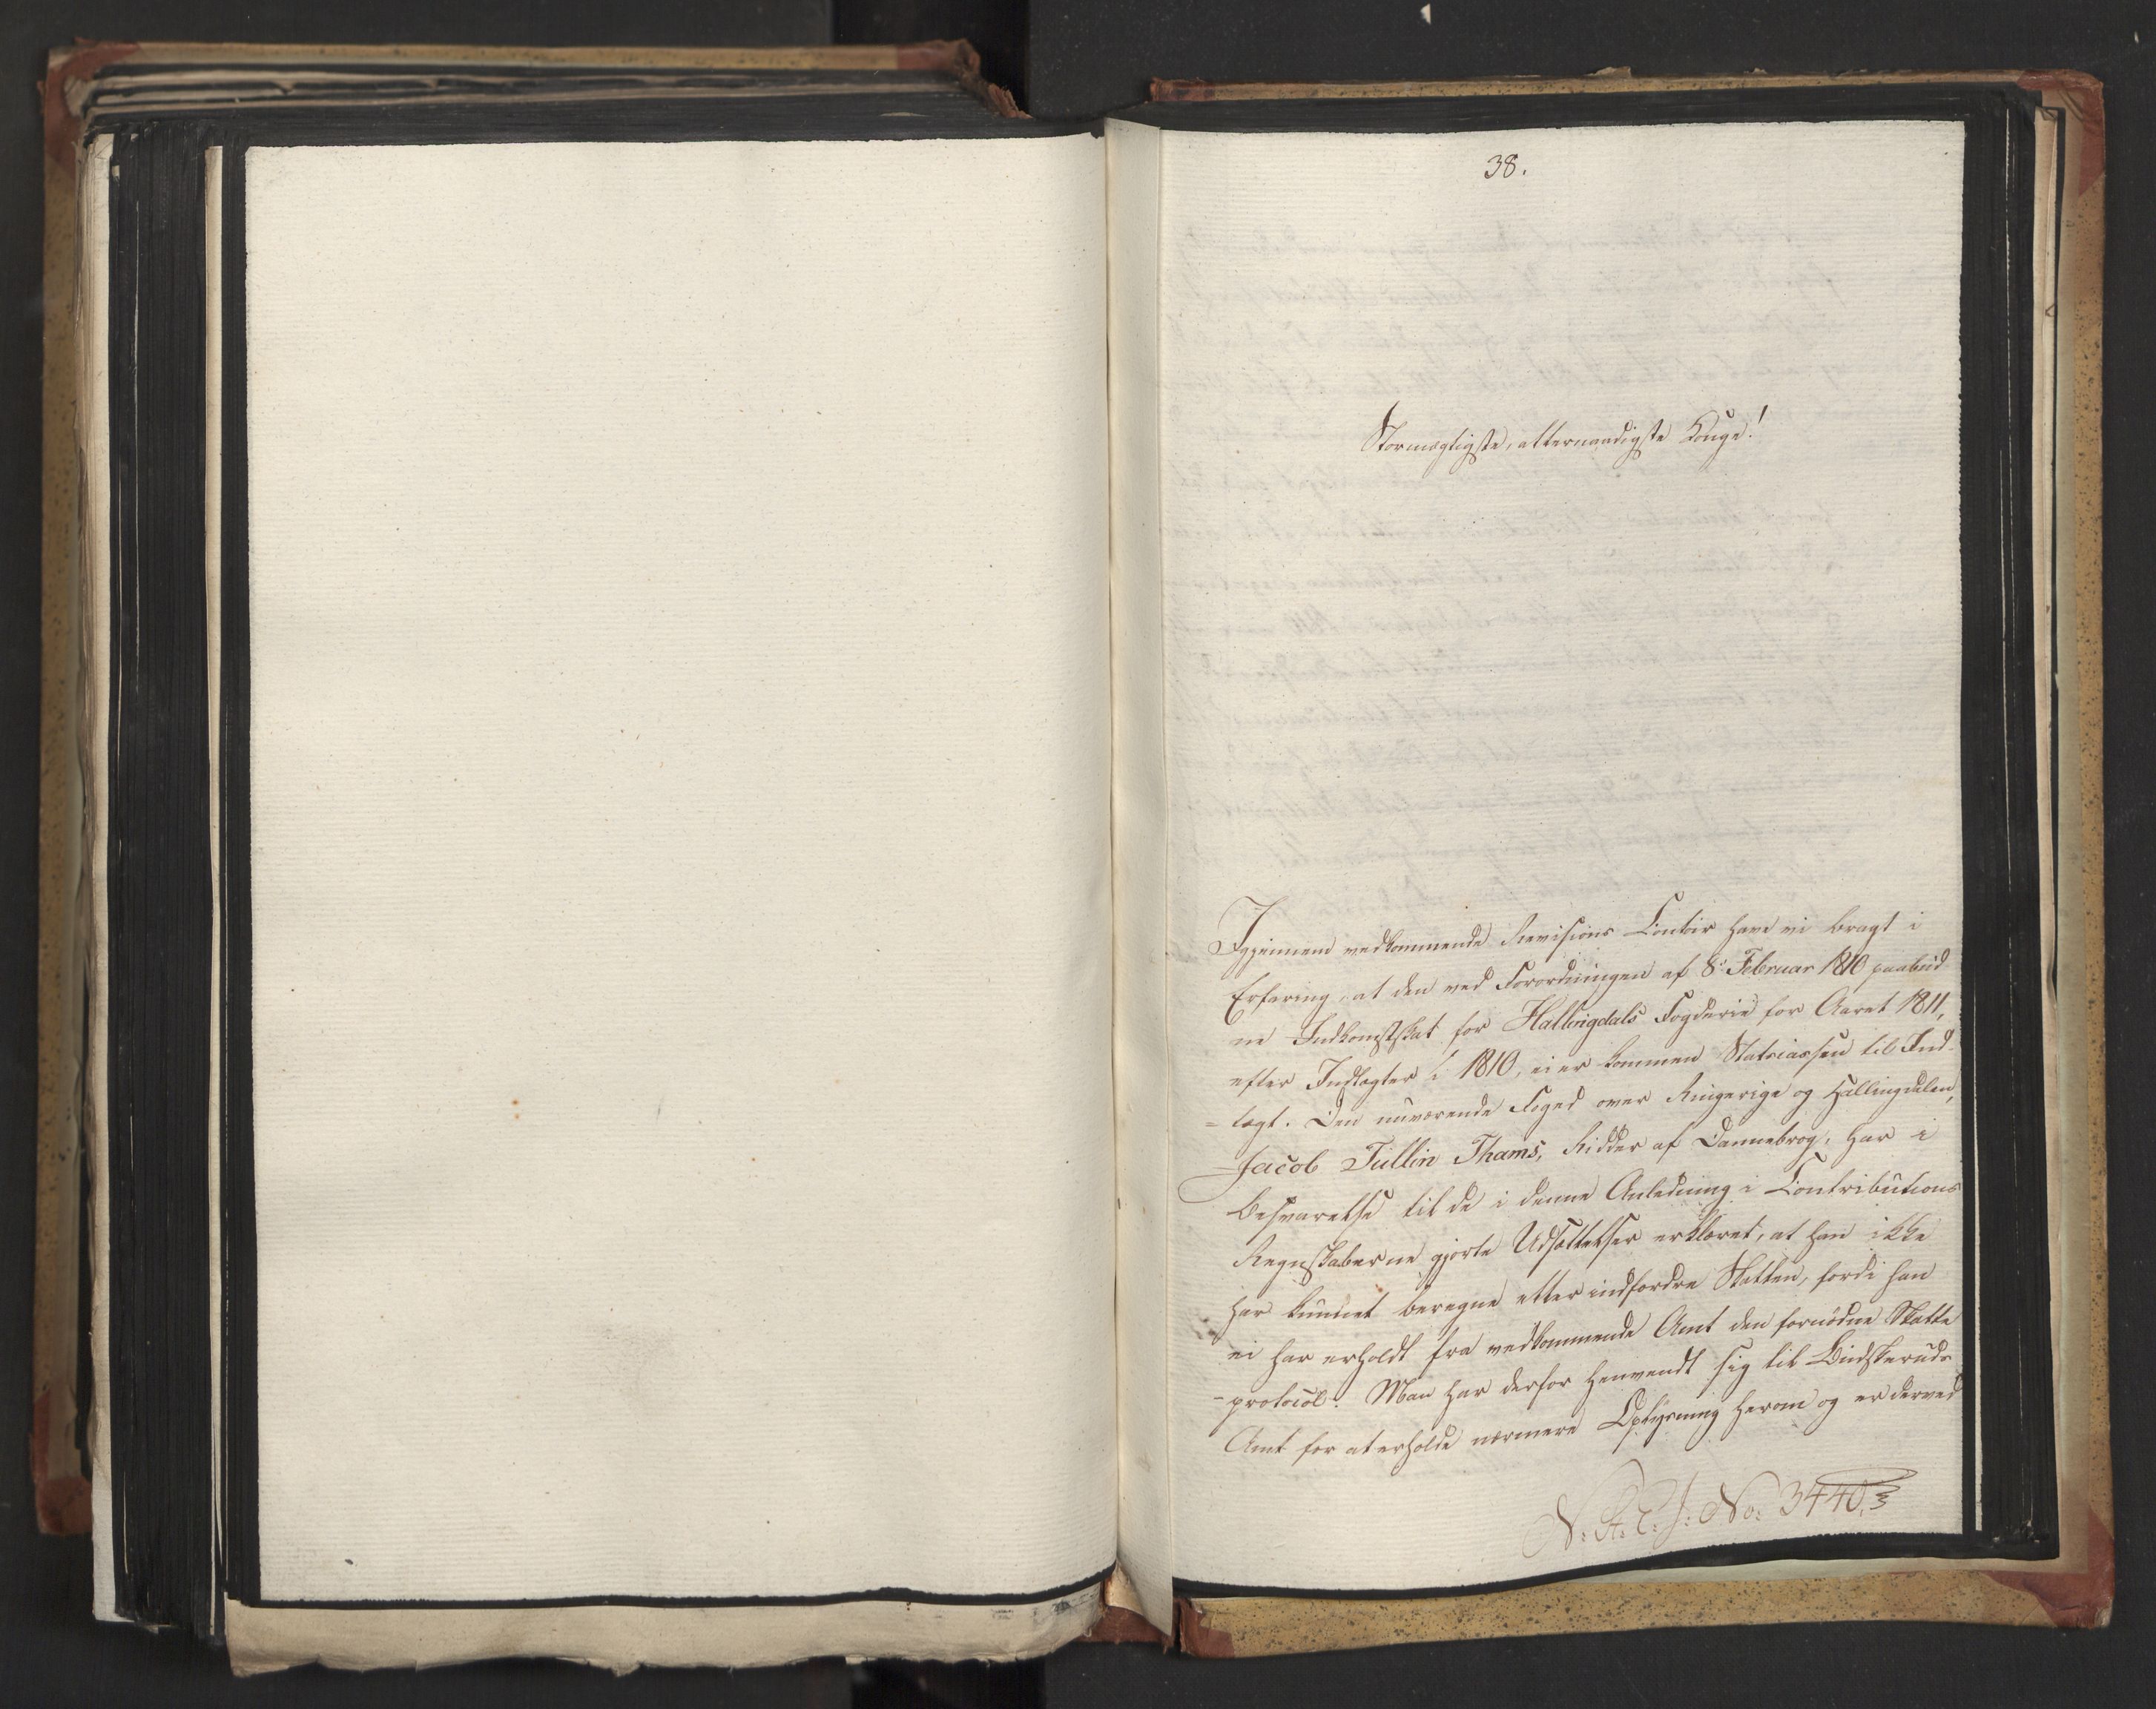 38.
Stormægtigste, allernaadigste Konge!
Igjennem vedkommende Revisions Contoir have vi bragt i
Erfaring, at den ved Forordningen af 8de Februar 1810 paabud-
ne Indkomstskat for Hallingdals Fogderie for Aaret 1811,
efter Indtægter i 1810, ei er kommen Statscassen til Ind-
=tægt. Den nuværende Foged over Ringerige og Hallingdalen,
Jacob Tullin Thams, Ridder af Dannebrog, har i
Besvarelse til de i denne Anledning i Contributions
Regnskaberne gjorte Udsættelser erklæret, at han ikke
har kunnet beregne eller indfordre Skatten, fordi han
ei har erholdt fra vedkommende Amt den fornødne Skatte
-protocol. Man har derfor henvendt sig til Budskeruds
Amt for at erholde nærmere Oplysning herom og er derved
No: 3440.